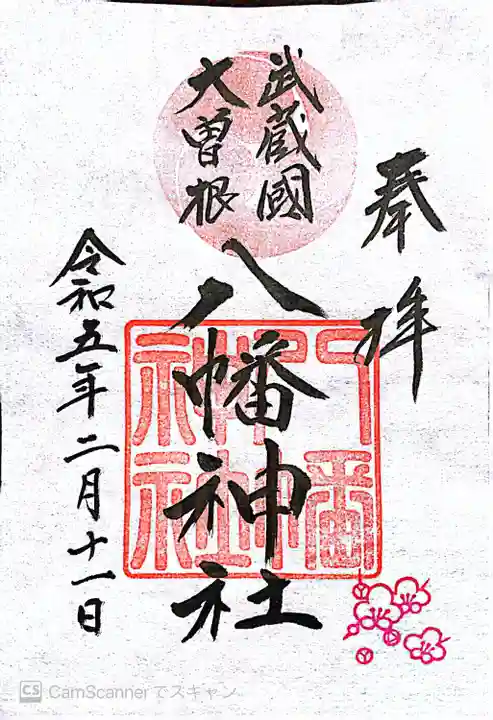 奉拝
武蔵國
大曽根
八幡神社
令和五年二月十一日
八幡神社
CS CamScannerでスキャン